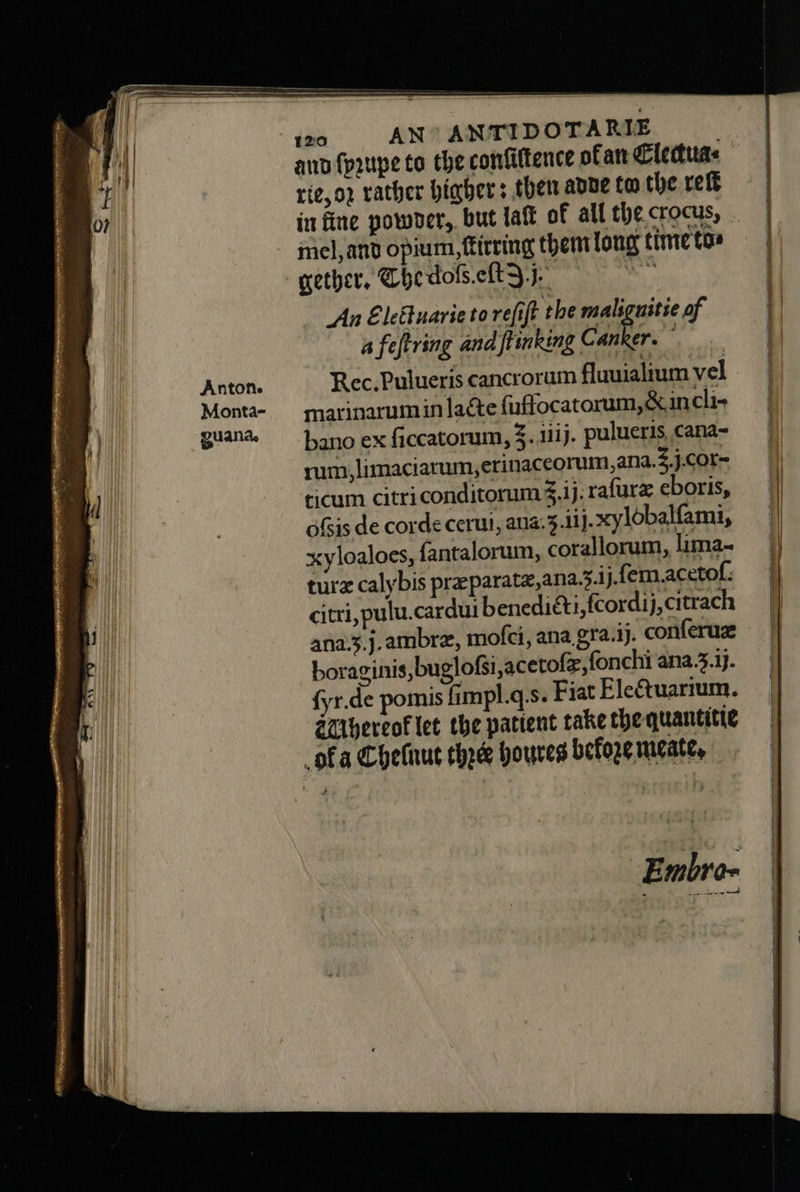 120 AN ANTIDOTARIE
and syrupe to the consistence of an Electua-
rie, or rather higher: then adde to the rest
in fine powder, but last of all the crocus,
mel, and opium, stirring them long time to-
gether. The dos. est ℈.j.
An Electuarie to resist the malignitie of
a festring and stinking Canker.
Anton. Rec. Pulueris cancrorum fluuialium vel
Monta- marinarum in lacte suffocatorum, & in cli-
guana. bano ex siccatorum, ℥. iiij. pulueris cana-
rum, limaciarum, erinaceorum, ana. ℥.j. cor-
ticum citri conditorum ℥.ij. rasuræ eboris,
ossis de corde cerui, ana. ʒ.iij. xylobalsami,
xyloaloes, santalorum, corallorum, lima-
turæ calybis præparatæ, ana. ʒ.ij. sem. acetos.
citri, pulu. cardui benedicti, scordij, citrach
ana. ʒ.j. ambræ, mosci, ana gra.ij. conseruæ
boraginis, buglossi, acetosæ, sonchi ana. ʒ.ij.
syr. de pomis simpl. q.s. Fiat Electuarium.
Whereof let the patient take the quantitie
of a Chesnut three houres before meate.
Embro-